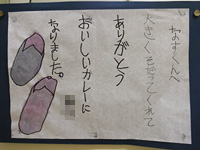 なすくんへ
大きくそだってくれて
ありがとう
おいしいカレーに
なりました。